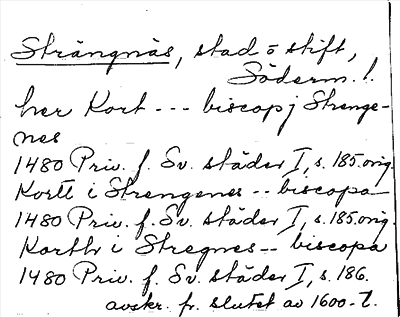 Strängnäs, stad o stift,
Söderm. l.
her Kort --- biscop j Strenge-
nes
1480 Priv. f. Sv. städer I, s. 185. orig.
Kortt i Strengenes -- biscopa
1480 Priv. f. Sv. städer I, s. 185. orig.
Korthr i Stregnes -- biscopa
1480 Priv. f. Sv. städer I, s. 186.
avskr. fr. slutet av 1600-t.